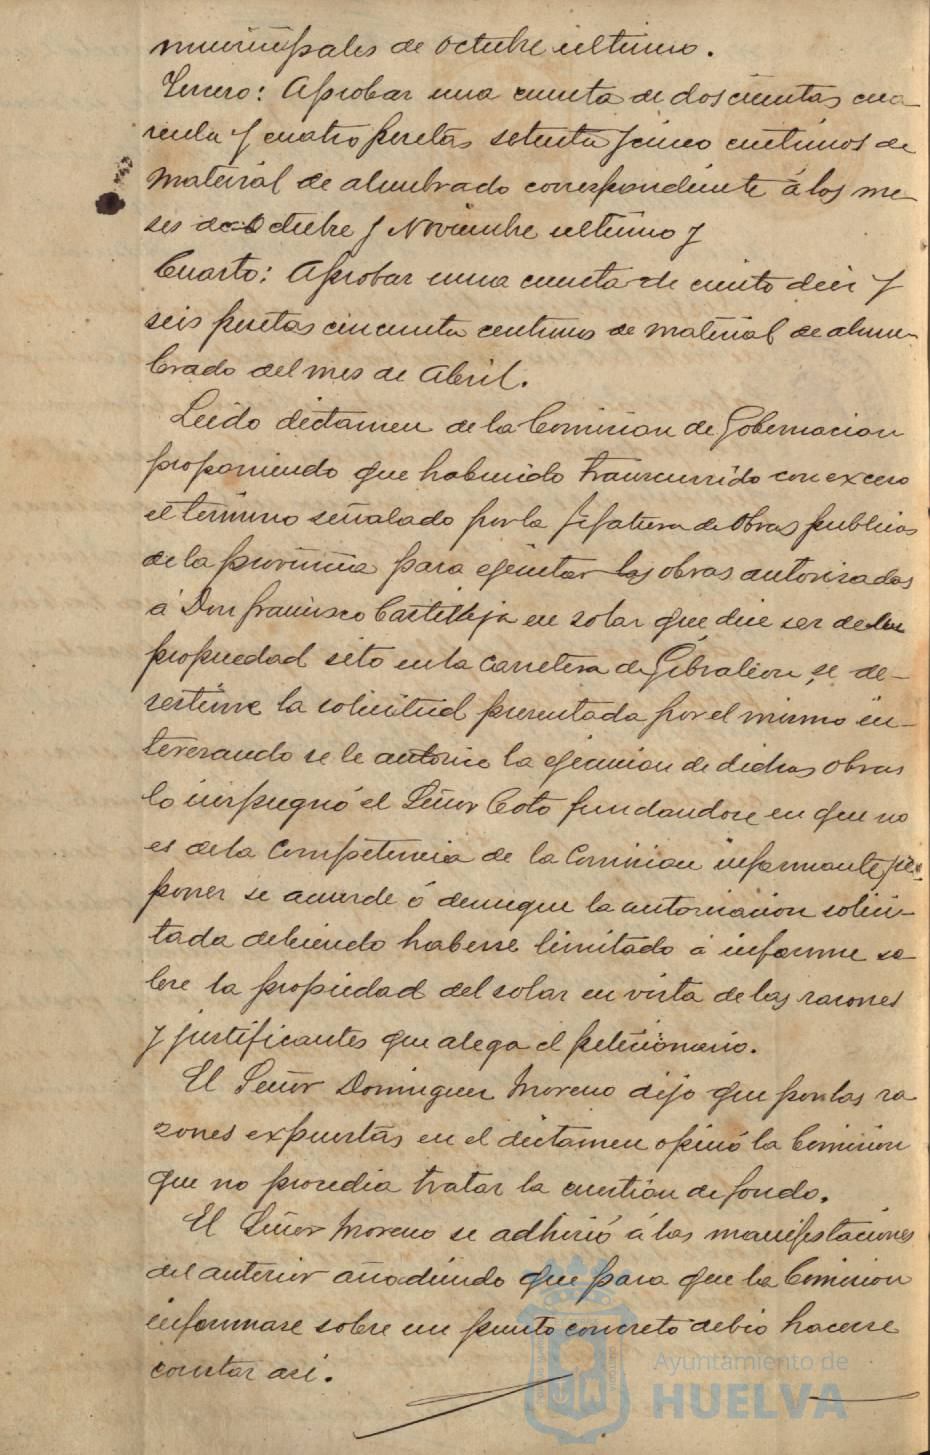 municipales de Octubre ultimo.
Tercero: Aprobar una cuenta de doscientas cua-
renta y cuatro pesetas setenta y cinco centimos de
material de alumbrado correspondiente á los me-
ses de Octubre y Noviembre ultimo y
Cuarto: Aprobar una cuenta de ciento diez y
seis pesetas cincuenta centimos de material de alum-
brado del mes de Abril.
Leido dictamen de la Comision de Gobernacion
proponiendo que habiendo transcurrido con exceso
el termino señalado por la Jefatura de Obras publicas
de la provincia para ejecutar las obras autorizadas
á Don Francisco Castilleja en solar que dice ser de su
propiedad sito en la carretera de Gibraleon, se de-
sestime la solicitud presentada por el mismo in-
teresando se le autorice la ejecucion de dichas obras
lo impugnó el Señor Coto fundandose en que no
es de la competencia de la Comision informante pro-
poner se acuerde ó deniegue la autorizacion solici-
tada debiendo haberse limitado á informe so-
bre la propiedad del solar en vista de las razones
y justificantes que alega el peticionario.
El Señor Dominguez Moreno dijo que por las ra
zones expuestas en el dictamen opinó la Comision
que no procedia tratar la cuestion de fondo.
El Señor Moreno se adhirió á las manifestaciones
del anterior añadiendo que para que la Comision
informase sobre un punto concreto debió hacerse
constar asi.
Ayuntamiento de
HUELVA